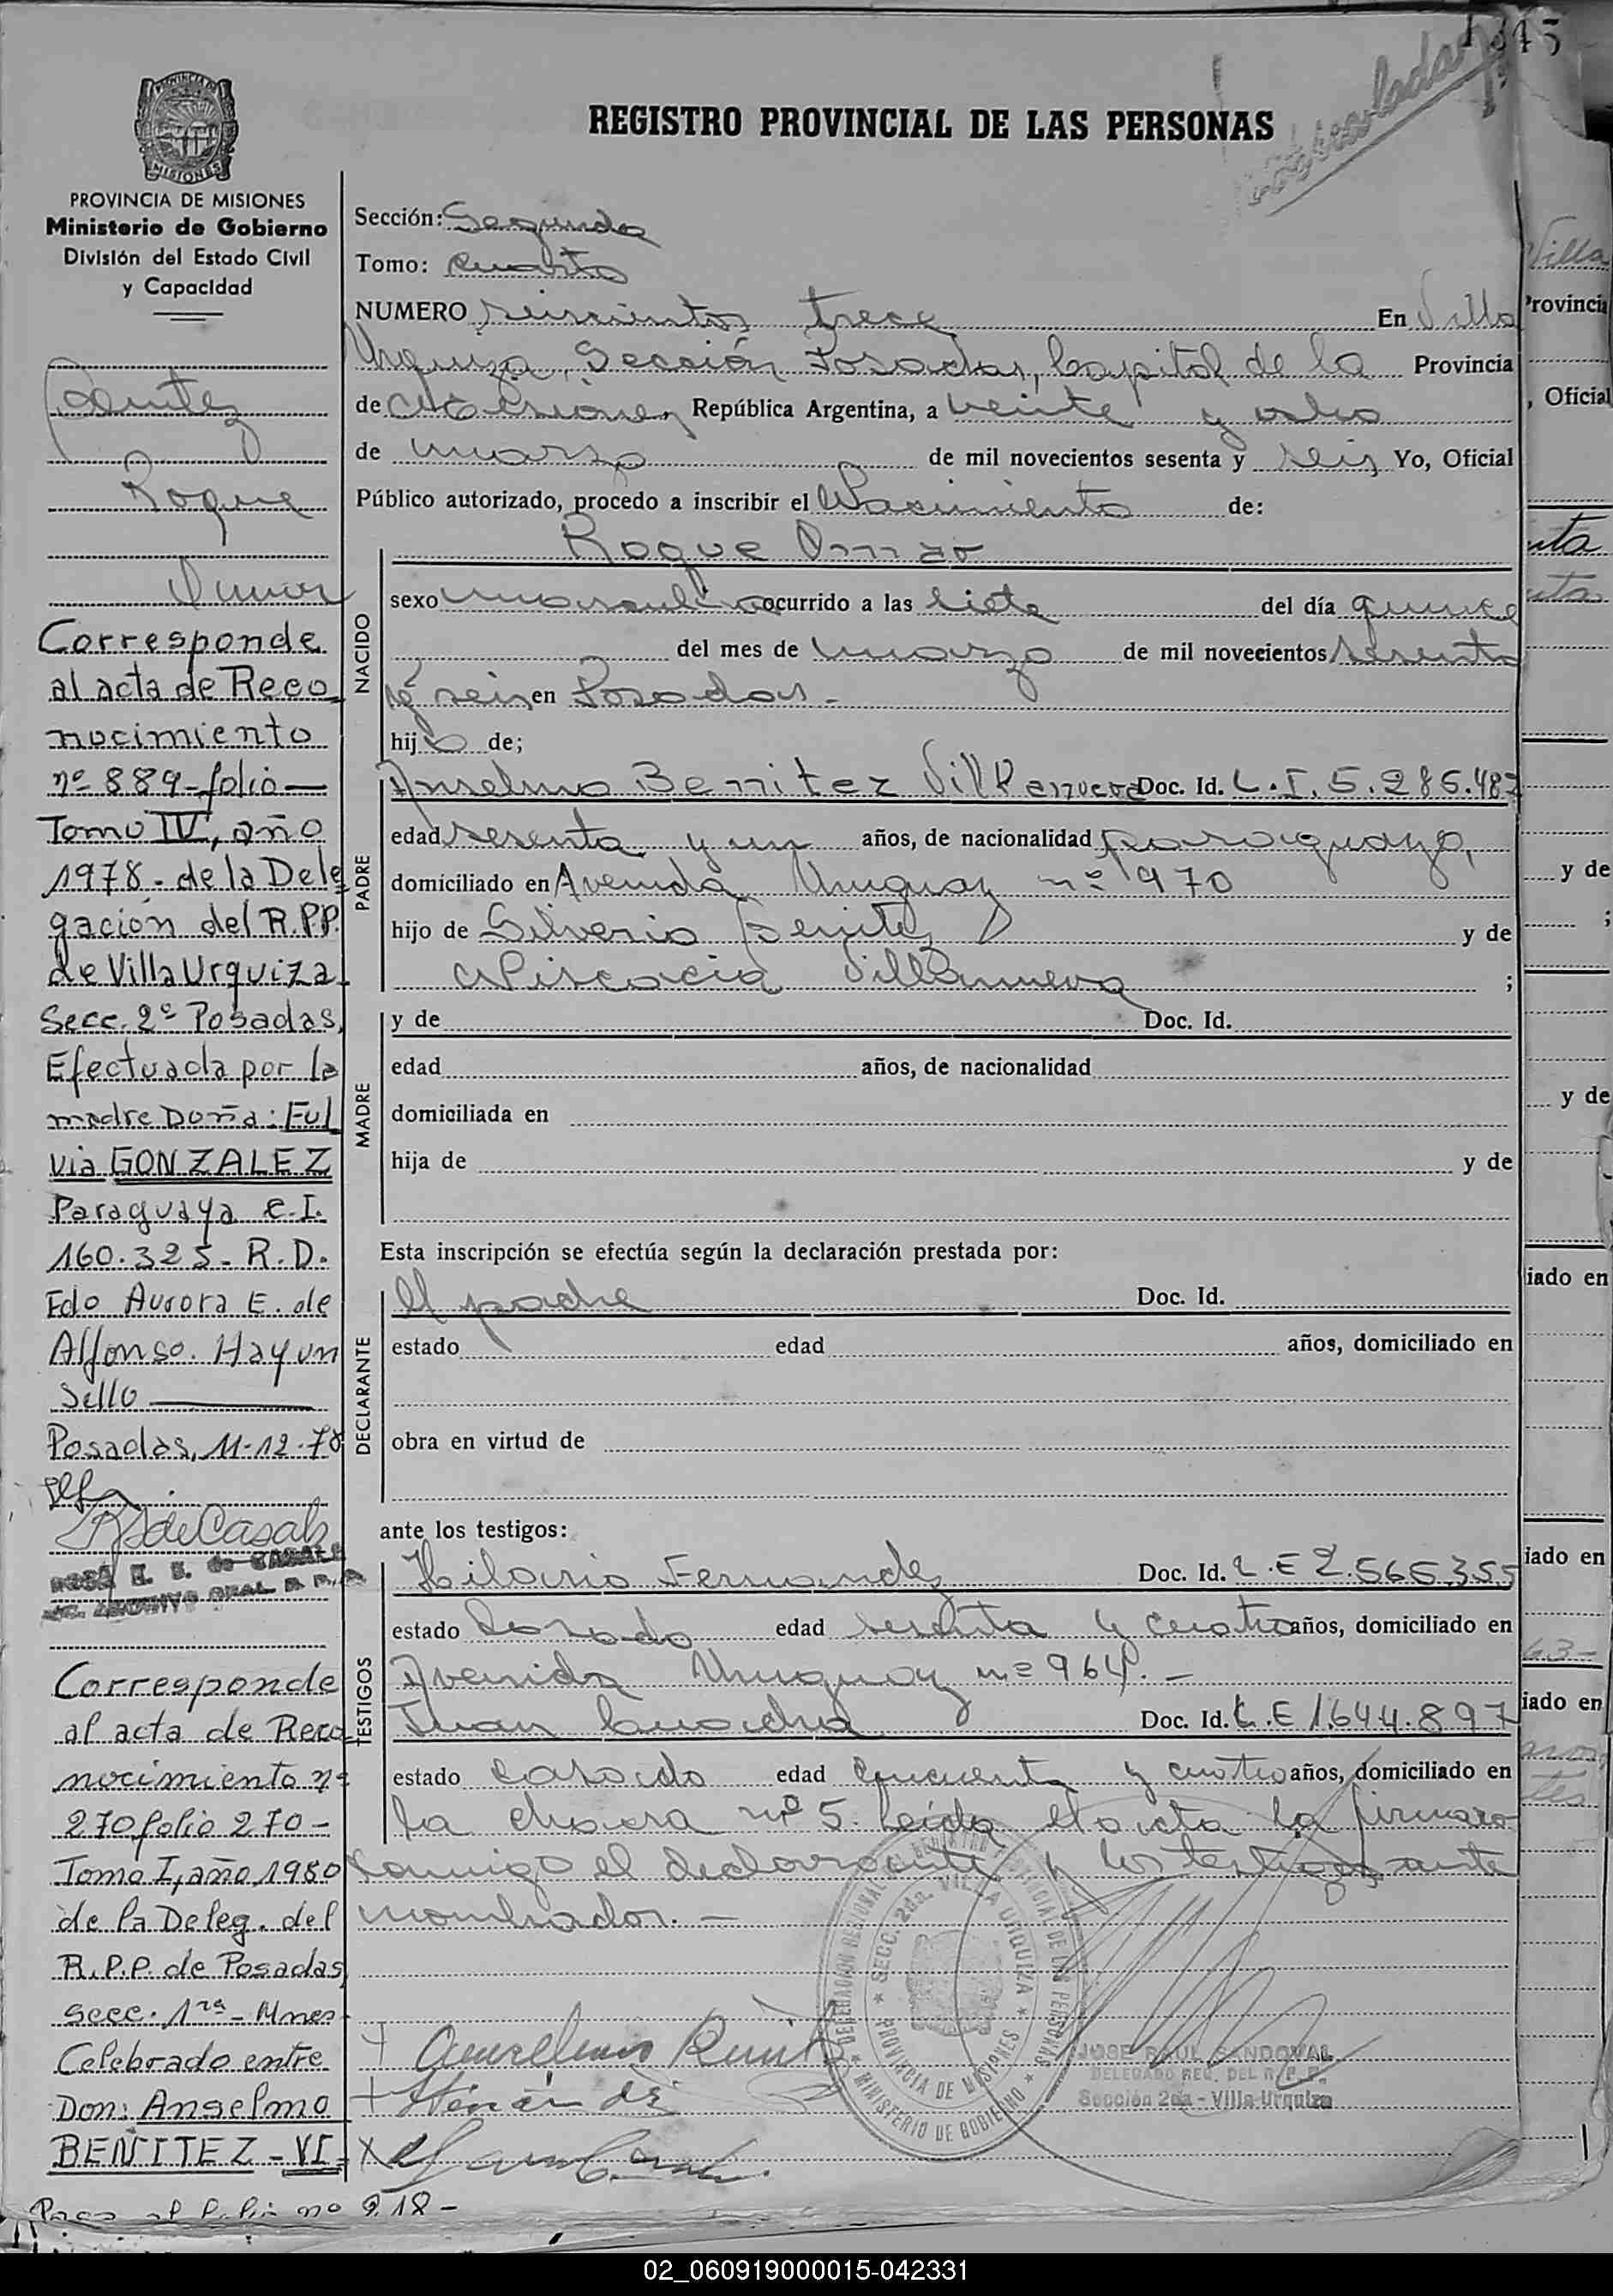 REGISTRO PROVINCIAL DE LAS PERSONAS
PROVINCIA DE MISIONES
Ministerio de Gobierno
División del Estado Civil
y Capacidad
Benitez
Roque
Omar
Corresponde
al acta de Reco
nocimiento
nº 889-folio—
Tomo IV, año
1978.- de la Dele
gación del R.P.P.
de Villa Urquiza
Secc. 2º Posadas,
Efectuada por la
madre Doña: Ful
via GONZALEZ
Paraguaya C.I.
160.325- R.D.
Fdo Aurora E. de
Alfonso. Hay un
Sello
Posadas, 11-12-78
de CASALS
Corresponde
al acta de Reco
nocimiento nº
270 folio 270-
Tomo I, año 1980
de la Deleg. del
R.P.P. de Posadas
secc. 1ra - Mnes
Celebrado entre
Don: Anselmo
BENITEZ - VI
Pasa al folio nº 918-
Sección: Segunda
Tomo: Cuarto
NUMERO seiscientos trece En Villa
Urquiza, Sección Posadas, Capital de la Provincia
de Misiones, República Argentina, a veinte y ocho
de marzo de mil novecientos sesenta y seis Yo, Oficial
Público autorizado, procedo a inscribir el Nacimiento de:
Roque Omar
NACIDO
sexo masculino ocurrido a las siete del día quince
del mes de marzo de mil novecientos sesenta
y seis en Posadas.-
hijo de;
PADRE
Anselmo Benitez Villanueva Doc. Id. L.I. 5.285.487
edad sesenta y un años, de nacionalidad paraguayo,
domiciliado en Avenida Uruguay nº 970
hijo de Silverio Benitez y de
Villanueva ;
MADRE
y de Doc. Id.
edad años, de nacionalidad
domiciliada en
hija de y de
Esta inscripción se efectúa según la declaración prestada por:
DECLARANTE
El padre Doc. Id.
estado edad años, domiciliado en
obra en virtud de
ante los testigos:
TESTIGOS
Hilario Fernandez Doc. Id. L.E 2.565.355
estado Casado edad sesenta y cuatro años, domiciliado en
Avenida Uruguay nº 964.-
Juan Doc. Id. L.E 1.644.897
estado casado edad cincuenta y cuatro años, domiciliado en
la chacra nº 5. Leída el acta la firmaron
conmigo el declarante y los testigos ante
nombrados.-
DELEGACION REGIONAL DEL REGISTRO PROVINCIAL DE LAS PERSONAS
SECC. 2da. VILLA URQUIZA
PROVINCIA DE MISIONES
MINISTERIO DE GOBIERNO
JOSE RAUL SANDOVAL
DELEGADO REG. DEL R.P.P.
Sección 2da - Villa Urquiza
Villa
Provincia
, Oficial
y de
;
y de
iado en
iado en
iado en
02_060919000015-042331